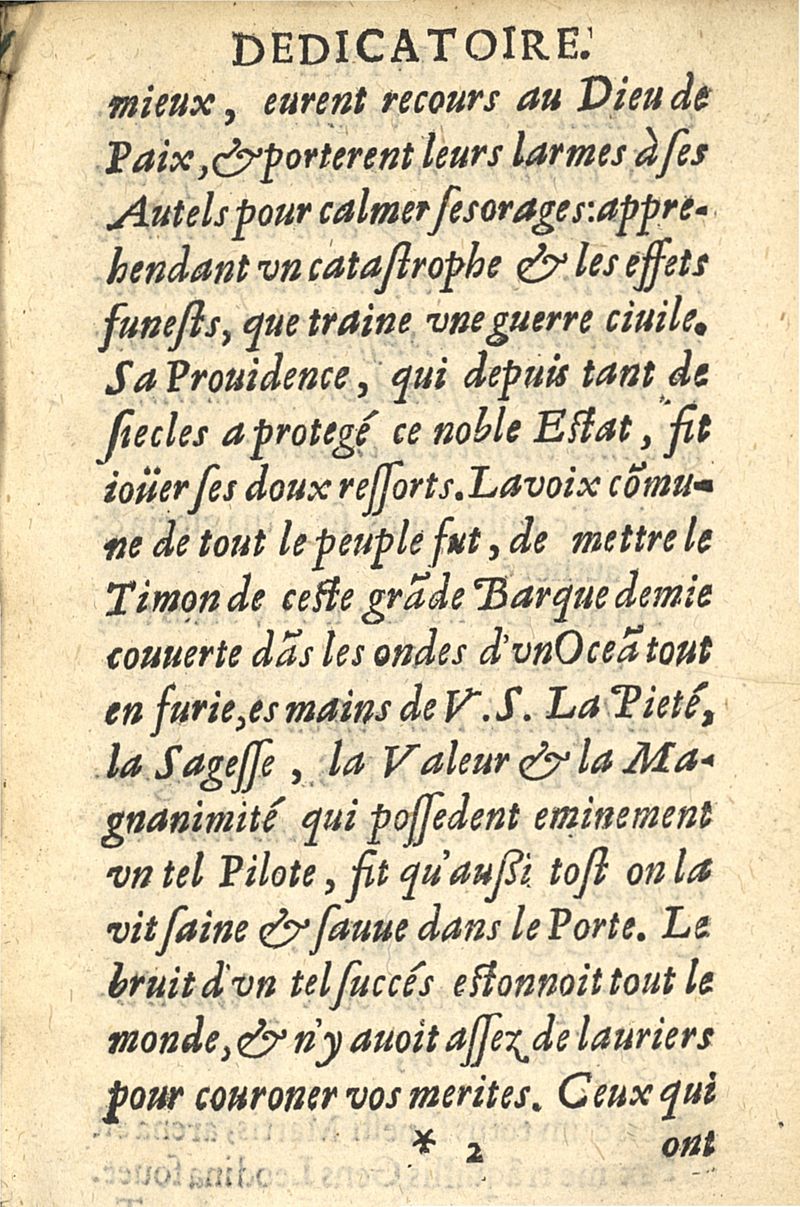 DEDICATOIRE.
mieux, eurent recours au Dieu de
Paix, & porterent leurs larmes à ſes
Autels pour calmer ſes orages: appre-
hendant vn cataſtrophe & les effets
funeſts, que traine vne guerre ciuile.
Sa Prouidence, qui depuis tant de
ſiecles a protegé ce noble Eſtat, fit
ioüer ſes doux reſſorts. La voix cõmu-
ne de tout le peuple fut, de mettre le
Timon de ceſte grãde Barque demie
couuerte dãs les ondes d'vn Oceã tout
en furie, es mains de V. S. La Pieté,
la Sageſſe, la Valeur & la Ma-
gnanimité qui poſſedent eminement
vn tel Pilote, fit qu'auſſi toſt on la
vit ſaine & ſauue dans le Porte. Le
bruit d'vn tel ſuccés eſtonnoit tout le
monde, & n'y auoit aſſez de lauriers
pour couroner vos merites. Ceux qui
* 2 ont